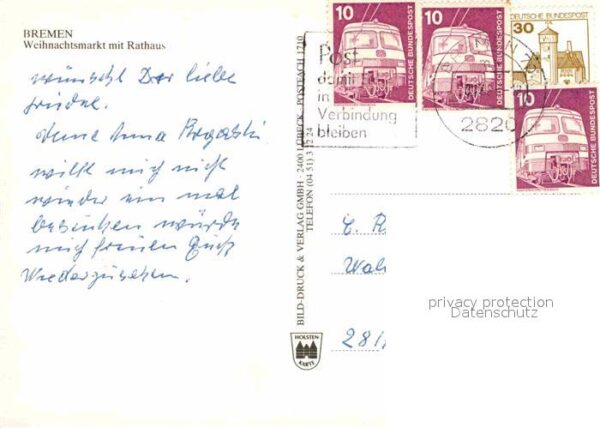 BREMEN
Weihnachtsmarkt mit Rathaus
wünscht Der liebe
Anna
will mich nicht
wieder ein mal
besuchen würde
mich freuen Euch
Wiederzusehen.
BILD-DRUCK & VERLAG GMBH · 2400 LÜBECK · POSTFACH 1210
TELEFON (04 51) 3 12 24
HOLSTEN
KARTE
Post
damit
in
Verbindung
bleiben
10
DEUTSCHE BUNDESPOST
10
DEUTSCHE BUNDESPOST
DEUTSCHE BUNDESPOST
30
10
DEUTSCHE BUNDESPOST
2820
privacy protection
Datenschutz